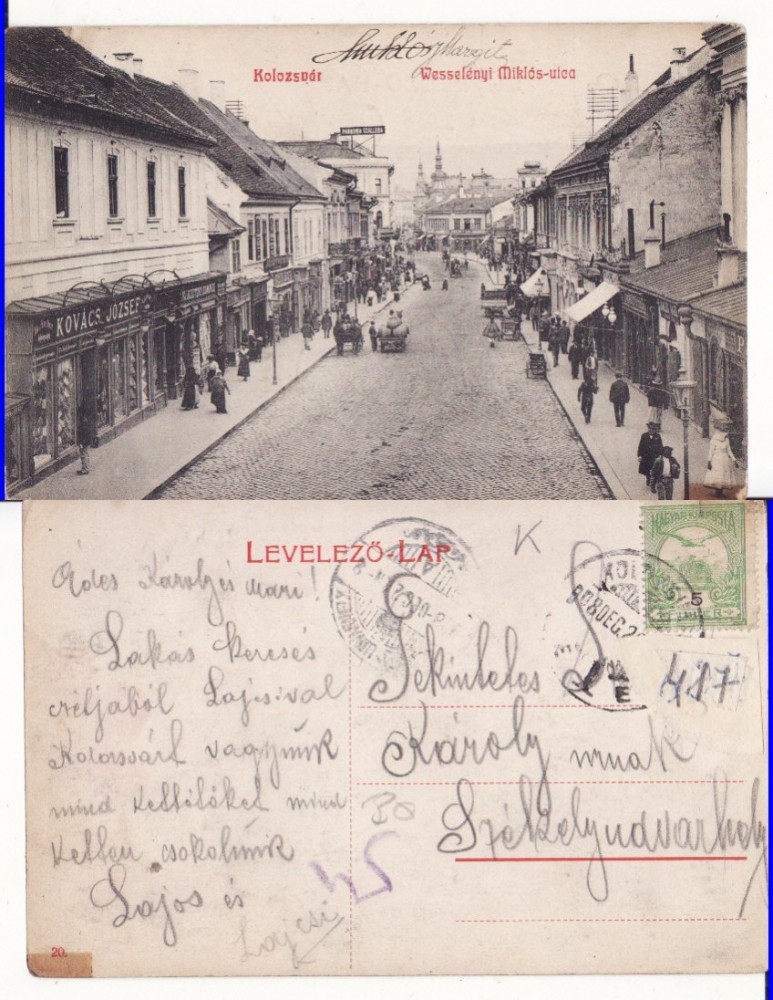 Miklós Margit
Kolozsvár
Wesselényi Miklós-utca
PANNONIA SZÁLLODA
KOVÁCS JÓZSEF
LEVELEZŐ-LAP
K
MAGYAR KIR. POSTA
5
KOLOZSVÁR
908 DEC. 2
E
487
Édes Károly és Mari!
Lakás keresés
céljából Lajcsival
Kolozsvárt vagyunk
mind kettőtöket mind
ketten csokolunk
Lajos és
Lajcsi
Tekintetes
Károly
urnak
Székelyudvarhely
20.